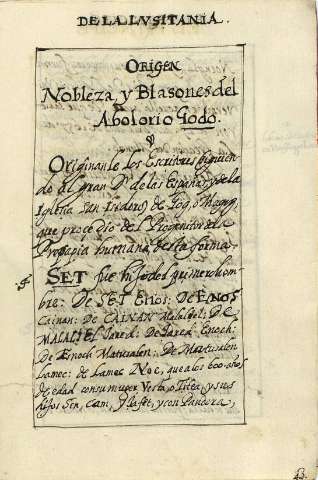 DE LA LVSITANIA.
ORIGEN
Nobleza, y Blasones del
Abolorio Godo.
y
Originanle los Escritores siguien
do al gran Dr. de las Españas, y de la
Iglesia San Isidero, de Gog, o Magog,
que procedio del Progenitor de la
Prosapia humana desta forma.
SET fue hijo del primer hom
bre: De SET Enos: De ENOS
Cainan: De CAINAN Malaliel: DE
MALALIEL Jared: De Jared: Enoch:
De Enoch Matusalen: De Matusalen
Lamec: de Lamec Noe, que a los 600 años
de edad con su muger Vesta, o Titea, y sus
hijos Sen, Cam, y Iafet, y con Pandora,